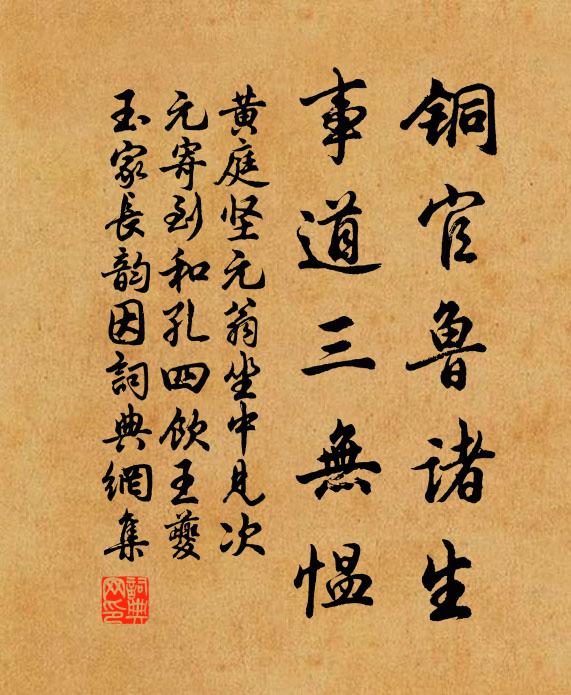 铜官鲁诸生
事道三無愠
黄庭坚元翁坐中见次
元寄到和孔四饮王夔
玉家長韵因詞典網集
詞典
网印